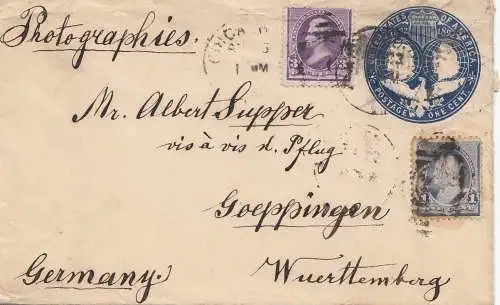 Photographies.
UNITED STATES OF AMERICA
POSTAGE ONE CENT
3 3
Mr. Albert Supper
vis à vis d. Pflug
Goeppingen
1 1
Germany. Wuerttemberg